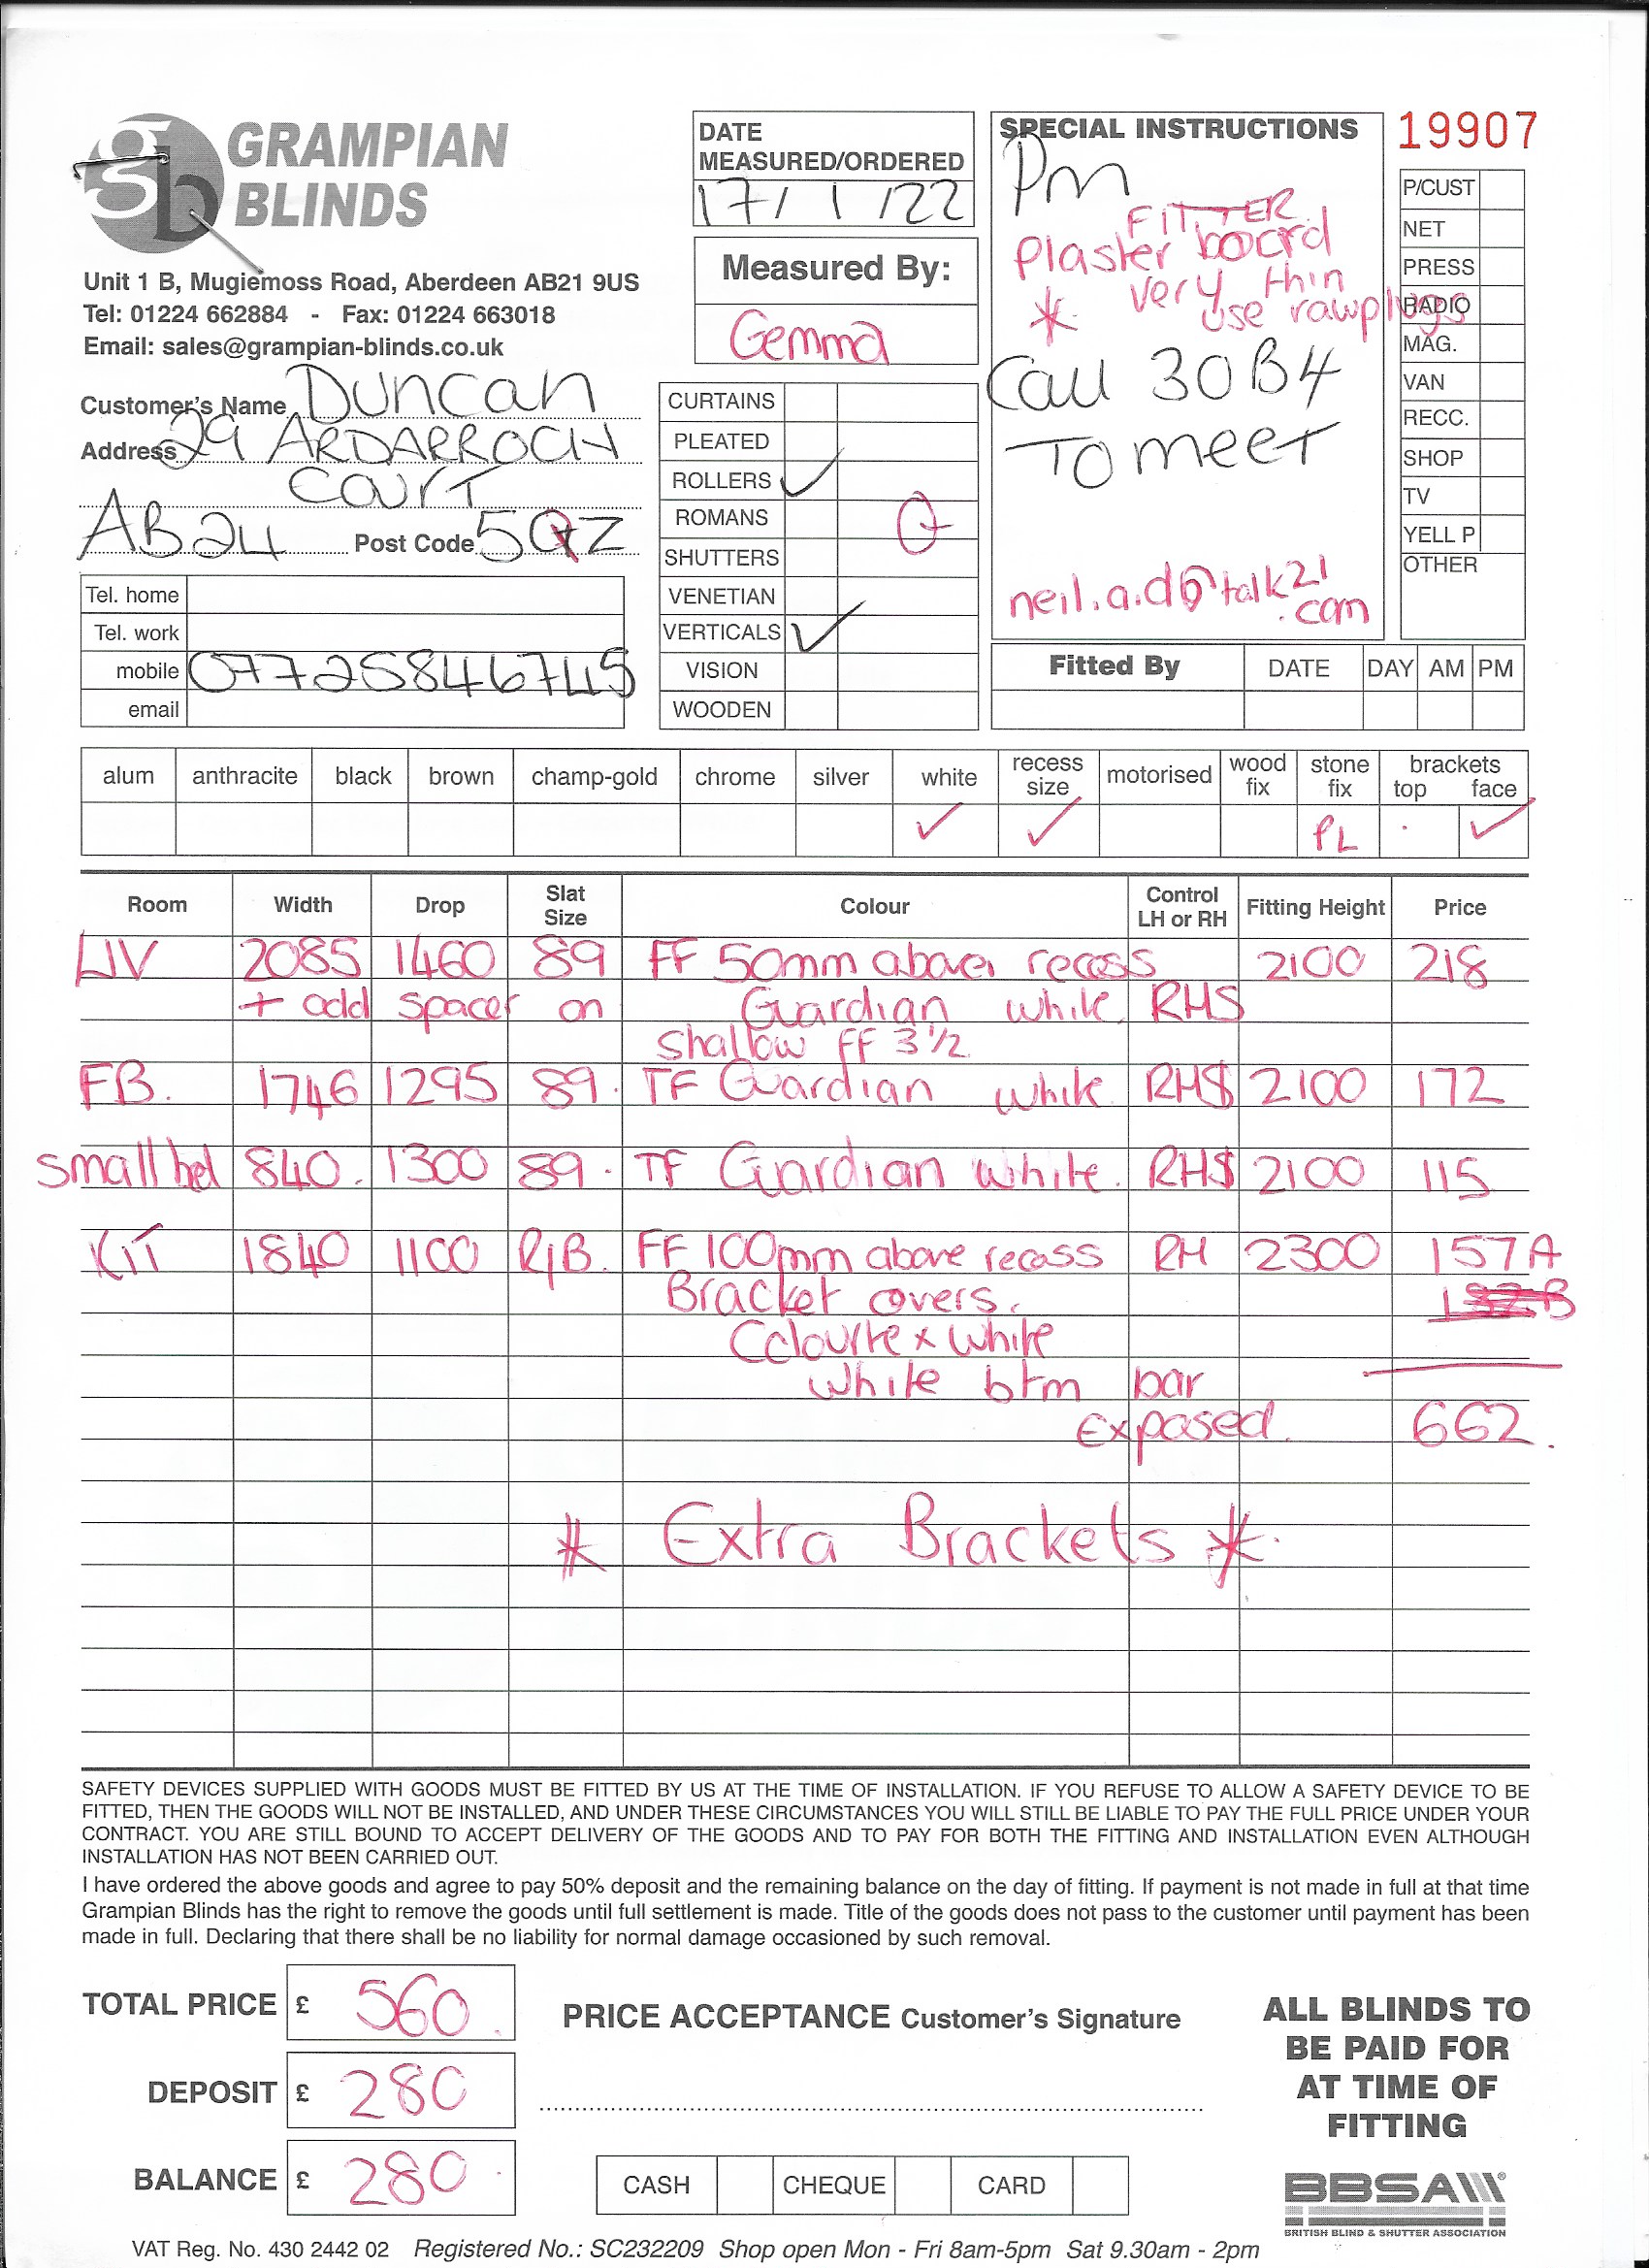 GRAMPIAN
BLINDS
Unit 1 B, Mugiemoss Road, Aberdeen AB21 9US
Tel: 01224 662884 - Fax: 01224 663018
Email: sales@grampian-blinds.co.uk
Customer's Name Duncan
Address 29 ARDARROCH
Court
AB24 Post Code 5QZ
Tel. home
Tel. work
mobile 07725846745
email
DATE
MEASURED/ORDERED
17/1/22
Measured By:
Gemma
CURTAINS
PLEATED
ROLLERS ✓
ROMANS Q
SHUTTERS
VENETIAN
VERTICALS ✓
VISION
WOODEN
SPECIAL INSTRUCTIONS
Pm
FITTER
Plaster board
very thin
* use rawplugs
Call 30 B4
To meet
neil.a.d@talk21
.com
19907
P/CUST
NET
PRESS
RADIO
MAG.
VAN
RECC.
SHOP
TV
YELL P
OTHER
Fitted By DATE DAY AM PM
alum anthracite black brown champ-gold chrome silver white recess size motorised wood fix stone fix brackets top face
✓ ✓ PL ✓
Room Width Drop Slat Size Colour Control LH or RH Fitting Height Price
LIV 2085 1460 89 FF 50mm above recess 2100 218
+ add spacer on Guardian white RHS
Shallow FF 3 1/2
FB. 1746 1295 89. TF Guardian white RHS 2100 172
small bed 840. 1300 89. TF Guardian white. RHS 2100 115
KIT 1840 1100 R/B. FF 100mm above recess RH 2300 157A
Bracket covers.
Colourtex white
white btm bar
Exposed. 662.
* Extra Brackets *
SAFETY DEVICES SUPPLIED WITH GOODS MUST BE FITTED BY US AT THE TIME OF INSTALLATION. IF YOU REFUSE TO ALLOW A SAFETY DEVICE TO BE
FITTED, THEN THE GOODS WILL NOT BE INSTALLED, AND UNDER THESE CIRCUMSTANCES YOU WILL STILL BE LIABLE TO PAY THE FULL PRICE UNDER YOUR
CONTRACT. YOU ARE STILL BOUND TO ACCEPT DELIVERY OF THE GOODS AND TO PAY FOR BOTH THE FITTING AND INSTALLATION EVEN ALTHOUGH
INSTALLATION HAS NOT BEEN CARRIED OUT.
I have ordered the above goods and agree to pay 50% deposit and the remaining balance on the day of fitting. If payment is not made in full at that time
Grampian Blinds has the right to remove the goods until full settlement is made. Title of the goods does not pass to the customer until payment has been
made in full. Declaring that there shall be no liability for normal damage occasioned by such removal.
TOTAL PRICE £ 560.
DEPOSIT £ 280
BALANCE £ 280.
PRICE ACCEPTANCE Customer's Signature
CASH CHEQUE CARD
ALL BLINDS TO
BE PAID FOR
AT TIME OF
FITTING
BBSA
BRITISH BLIND & SHUTTER ASSOCIATION
VAT Reg. No. 430 2442 02 Registered No.: SC232209 Shop open Mon - Fri 8am-5pm Sat 9.30am - 2pm